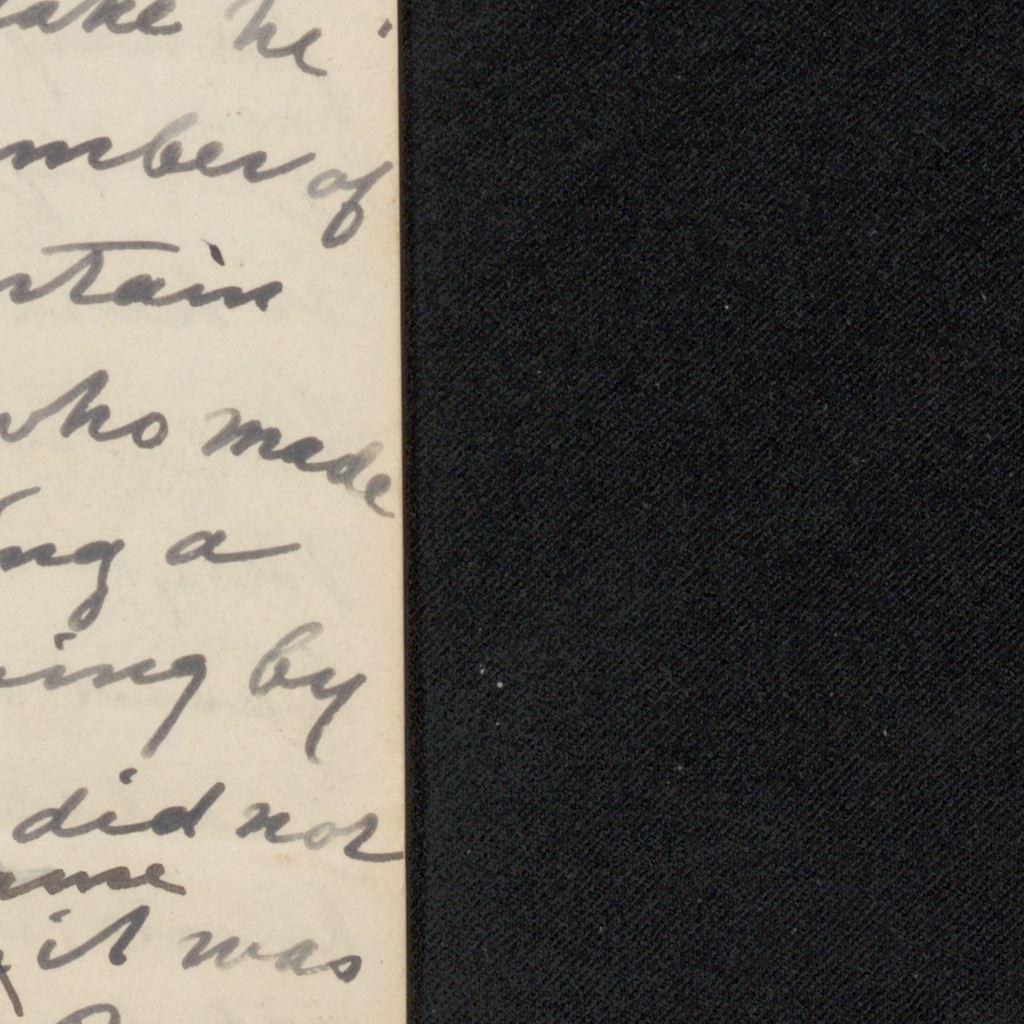 take he
mber of
rtain
who made
ing a
ing by
did not
ame
it was